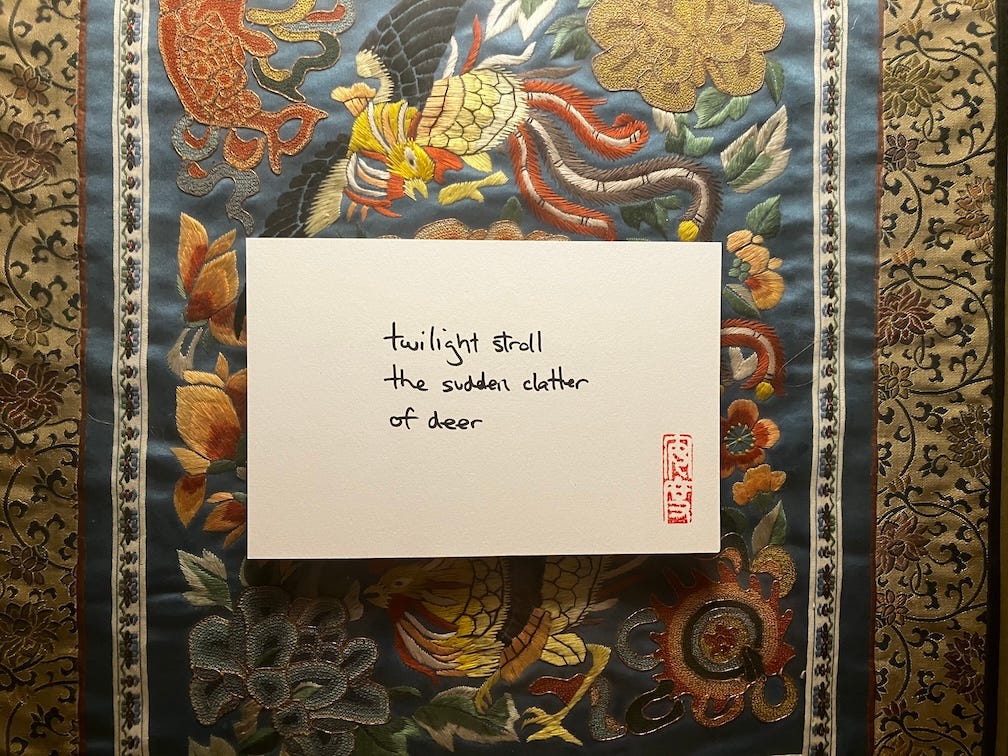 twilight stroll
the sudden clatter
of deer